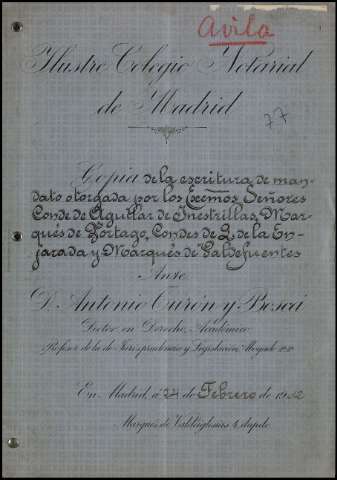 Avila
Ilustre Colegio Notarial
de Madrid
77
Copia de la escritura de man-
dato otorgada por los Excmos. Señores
Conde de Aguilar de Inestrillas, Mar-
qués de Portago, Condes de la En-
jarada y Marqués de Valdefuentes
Ante
D. Antonio Turón y Boscá
Doctor en Derecho, Académico
Profesor de la de Jurisprudencia y Legislación, Abogado
En Madrid, á 24 de Febrero de 1912
Marqués de Valdeiglesias 4, dupdo.